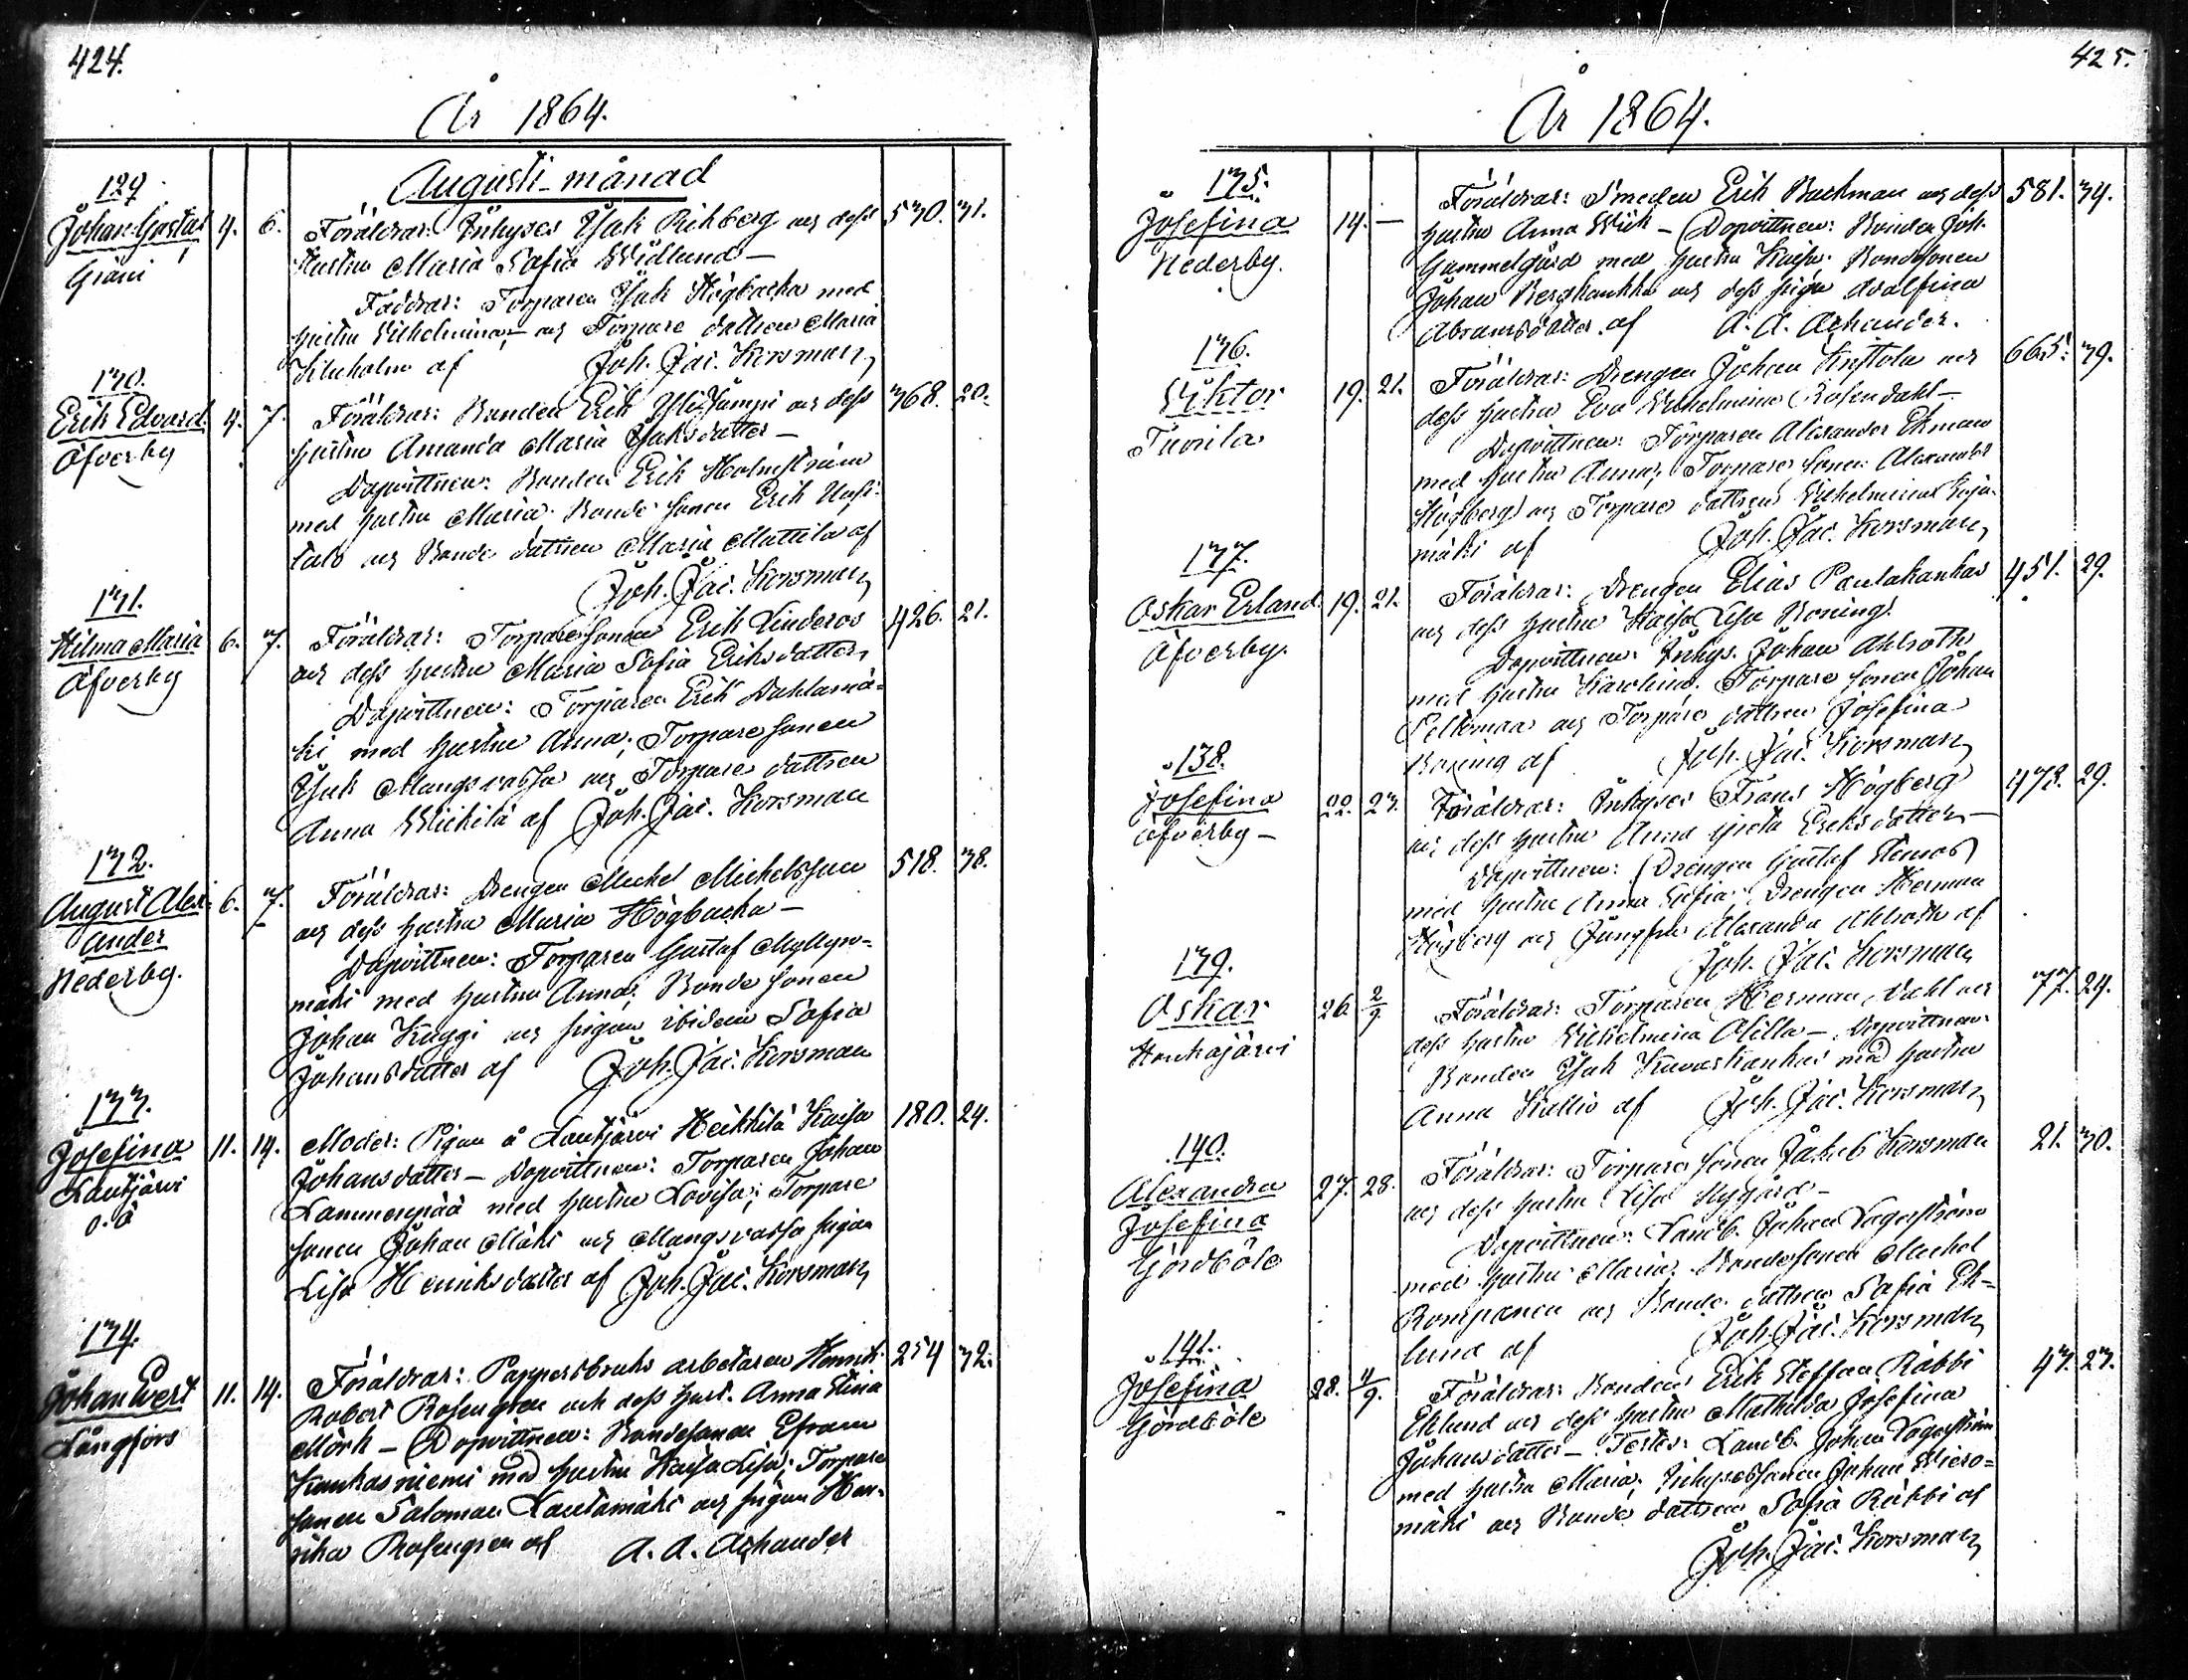 424.
År 1864.
Augusti månad
129.
Johan Gustaf 4. 6.
Gräni
Föräldrar: Inhyses Isak Rihberg och dess 530. 31.
Hustru Maria Sofia Widlund—
Faddrar: Torparen Isak Högbacka med
hustru Wilhelmina,— och Torpare dattren Maria
af Joh. Jac. Korsman
130.
Erik Edvard 4. 7.
Öfverby
Föräldrar: Bonden Erik och dess 368. 20.
hustru Amanda Maria Isaksdatter—
Dopvittnen: Bonden Erik Holmström
med hustru Maria. Bonde sonen Erik Uusi-
talo och Bonde dattren Maria Mattila af
Joh. Jac. Korsman
131.
Hilma Maria 6. 7.
Öfverby
Föräldrar: Torparesonen Erik Linderos 426. 21.
och dess hustru Maria Sofia Eriksdatter,
Dopvittnen: Torparen Erik Dahlamä-
ki med hustru Anna; Torpare sonen
Isak Mangs och Torpare dattren
Anna Wickilä af Joh. Jac. Korsman
132.
August Alex- 6. 7.
ander
Nederby.
Föräldrar: Drengen Mickel Mickelsson 518. 38.
och dess hustru Maria Högbacka—
Dopvittnen: Torparen Gustaf Myllyn-
mäki med hustru Anna; Bonde sonen
Johan Kuggi och pigan ibidem Sofia
Johansdatter af Joh. Jac. Korsman
133.
Josefina 11. 14.
Lautjärvi
o.ä
Moder: Pigan å Lautjärvi Heikkilä Kaisa 180. 24.
Johansdatter— Dopvittnen: Torparen Johan
Lammenpää med hustru Lovisa; Torpare
sonen Johan Mäki och pigan
Lisa Henriksdatter af Joh. Jac. Korsman
134.
Johan Evert 11. 14.
Långfors
Föräldrar: Pappersbruks arbetaren Henrik 254 32.
Robert Rosengren och dess hust. Anna Stina
Mörk— Dopvittnen: Bondesonen Efraim
Kankasniemi med hustru Kaisa Lisa; Torpare
sonen Salomon Lautamäki och pigan Hen-
rika Rosengren af A. A. Achander
425.
År 1864.
135.
Josefina 14. —
Nederby.
Föräldrar: Smeden Erik Backman och dess 581. 34.
hustru Anna Wiik— Dopvittnen: Bonden Joh.
Gammelgård med hustru Kaisa. Bondesonen
Johan Berghankka och dess piga Adolfina
Abramsdatter af A. A. Achander.
136.
Viktor 19. 21.
Tuorila
Föräldrar: Drengen Johan och 665. 39.
dess hustru Eva Wilhelmina Rosendahl—
Dopvittnen: Torparen Alexander Ekman
med hustru Anna; Torpare sonen Alexander
Högberg och Torpare dattren Wilhelmina
mäki af Joh. Jac. Korsman
137.
Oskar Erland 19. 21.
Öfverby.
Föräldrar: Drengen Elias Pantakankas 451. 29.
och dess hustru Kaisa Lisa Roning.
Dopvittnen: Inhys. Johan Ahlroth
med hustru Karolina. Torpare sonen Johan
Peltomaa och Torpare dattren Josefina
Roning af Joh. Jac. Korsman
138.
Josefina 22. 23.
Öfverby—
Föräldrar: Inhyses Frans Högberg 473. 29.
och dess hustru Anna Greta Eriksdatter—
Dopvittnen: Drengen Gustaf
med hustru Anna Sofia; Drengen Herman
Högberg och Jungfru Alexandra Ahlroth af
Joh. Jac. Korsman
139.
Oskar 26. 2/9
Honkajärvi
Föräldrar: Torparen Herman Dahl och 77. 24.
dess hustru Wilhelmina Ollila— Dopvittnen:
Bonden Isak Kuvaskankas med hustru
Anna Kallio af Joh. Jac. Korsman
140.
Alexandra 27. 28.
Josefina
Gördböle
Föräldrar: Torpare sonen Jakob Korsman 21. 30.
och dess hustru Lisa Nygård—
Dopvittnen: Landb. Johan Lagerström
med hustru Maria. Bondesonen Mickel
Rompanen och Bonde dattren Sofia Ek-
lund af Joh. Jac. Korsman
141.
Josefina 28. 4/9.
Gördböle
Föräldrar: Bonden Erik Steffan Räbbi 43. 23.
Eklund och dess hustru Mathilda Josefina
Johansdatter— Testes: Landb. Johan Lagerström
med hustru Maria; Inhysessonen Johan Wiero-
mäki och Bonde dattren Sofia Räbbi af
Joh. Jac. Korsman